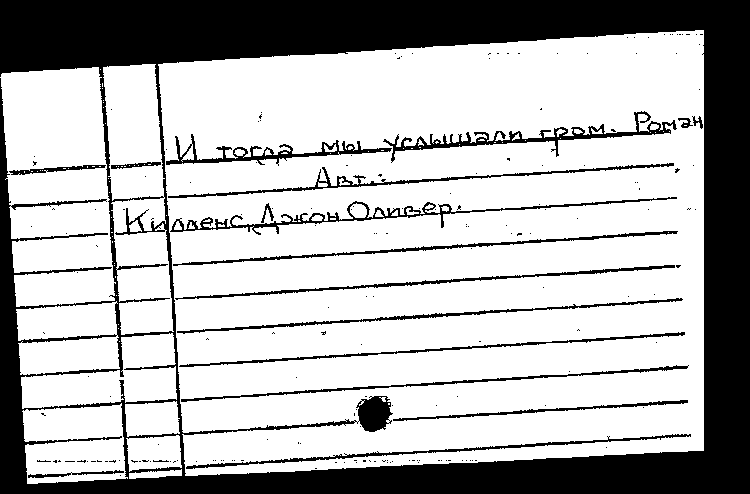 И тогда мы услышали гром. Роман
Авт.:
Килленс, Джон Оливер.